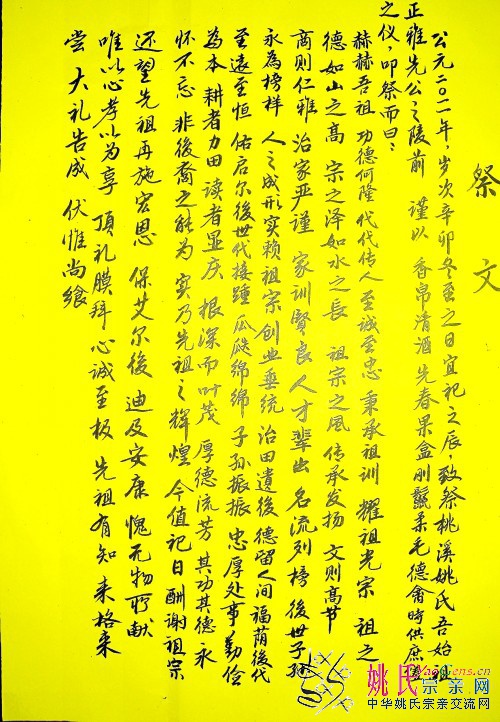 祭文
公元二〇一一年，岁次辛卯冬至之日宜祀之辰，致祭桃溪姚氏吾始祖
正雅先公之陵前 谨以 香帛清酒先春果盒刚鬣柔毛德禽時供庶羞
之仪，叩祭而曰：
赫赫吾祖 功德何隆 代代传人 至诚至忠 秉承祖训 耀祖光宗 祖之
德如山之高 宗之泽如水之長 祖宗之風 传承发扬 文则高节
商则仁雅 治家严谨 家训賢良 人才辈出 名流列榜 後世子孙
永為榜样 人之成形实赖祖宗 创业垂統 治田遺後 德留人间 福荫後代
至遠至恒 佑启尔後世代接踵 瓜瓞綿綿 子孙振振 忠厚处事勤俭
為本 耕者力田 读者显庆 根深而叶茂 厚德流芳 其功其德 永
怀不忘 非後裔之能为 实乃先祖之辉煌 今值祀日 酬谢祖宗
还望先祖再施宏恩 保艾尔後 迪及安康 愧无物可献
唯以心孝以为享 頂礼膜拜 心诚至极 先祖有知 来格来
尝 大礼告成 伏惟尚飨
yaogens.cn
姚氏宗亲网
中华姚氏宗亲交流网